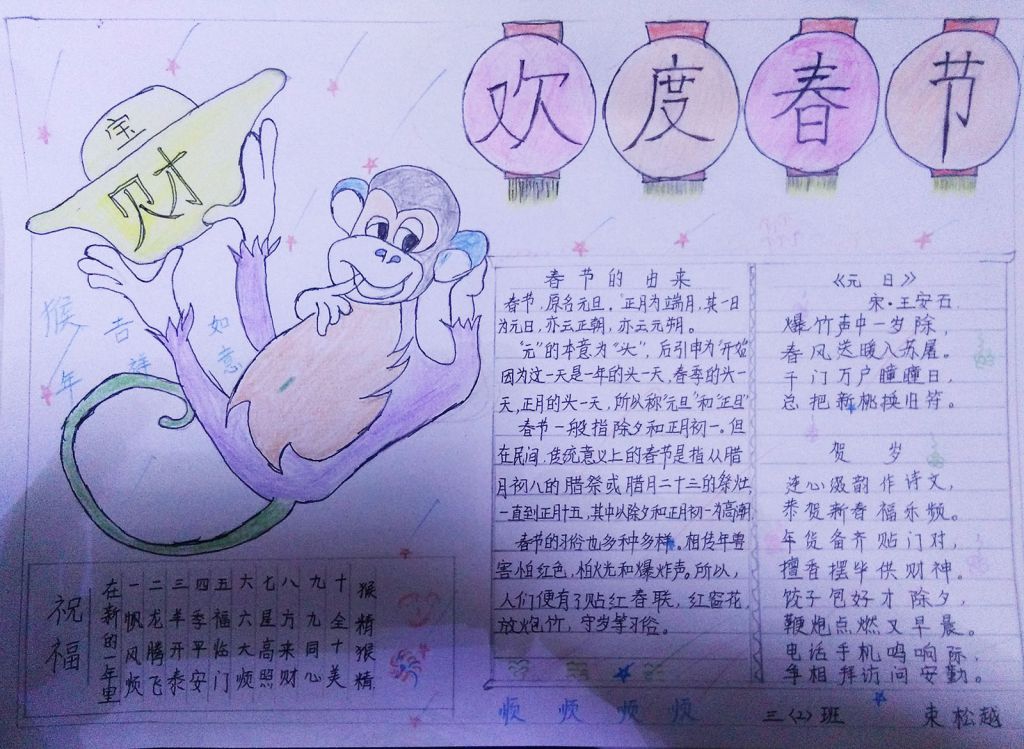 欢度春节
宝
财
猴年吉祥如意
春节的由来
春节,原名元旦,正月为端月,其一日
为元日,亦云正朝,亦云元朔。
"元"的本意为"头",后引申为"开始"
因为这一天是一年的头一天,春季的头一
天,正月的头一天,所以称"元旦"和"正旦"
春节一般指除夕和正月初一。但
在民间,传统意义上的春节是指从腊
月初八的腊祭或腊月二十三的祭灶,
一直到正月十五,其中以除夕和正月初一为高潮
春节的习俗也多种多样。相传年兽
害怕红色,怕火光和爆炸声。所以,
人们便有了贴红春联,红窗花,
放炮竹,守岁等习俗。
《元日》
宋·王安石
爆竹声中一岁除,
春风送暖入苏屠。
千门万户瞳瞳日,
总把新桃换旧符。
贺岁
连心缀韵作诗文,
恭贺新春福乐频。
年货备齐贴门对,
檀香摆华供财神。
饺子包好才除夕,
鞭炮点燃又早晨。
电话手机鸣响际,
争相拜访问安勤。
祝福
在新的一年里
一帆风顺
二龙腾飞
三羊开泰
四季平安
五福临门
六六大顺
七星高照
八方来财
九九同心
十全十美
猴精猴精
顺 顺 顺 顺
三〈2〉班 束松越